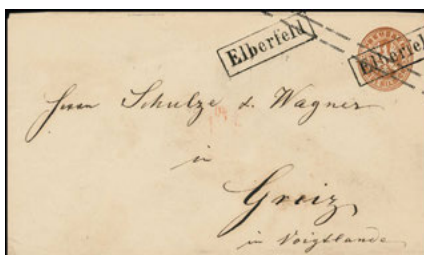 Elberfeld
Elberfeld
PREUSSEN
Herrn Schulze & Wagner
in
Greiz
in Voigtlande